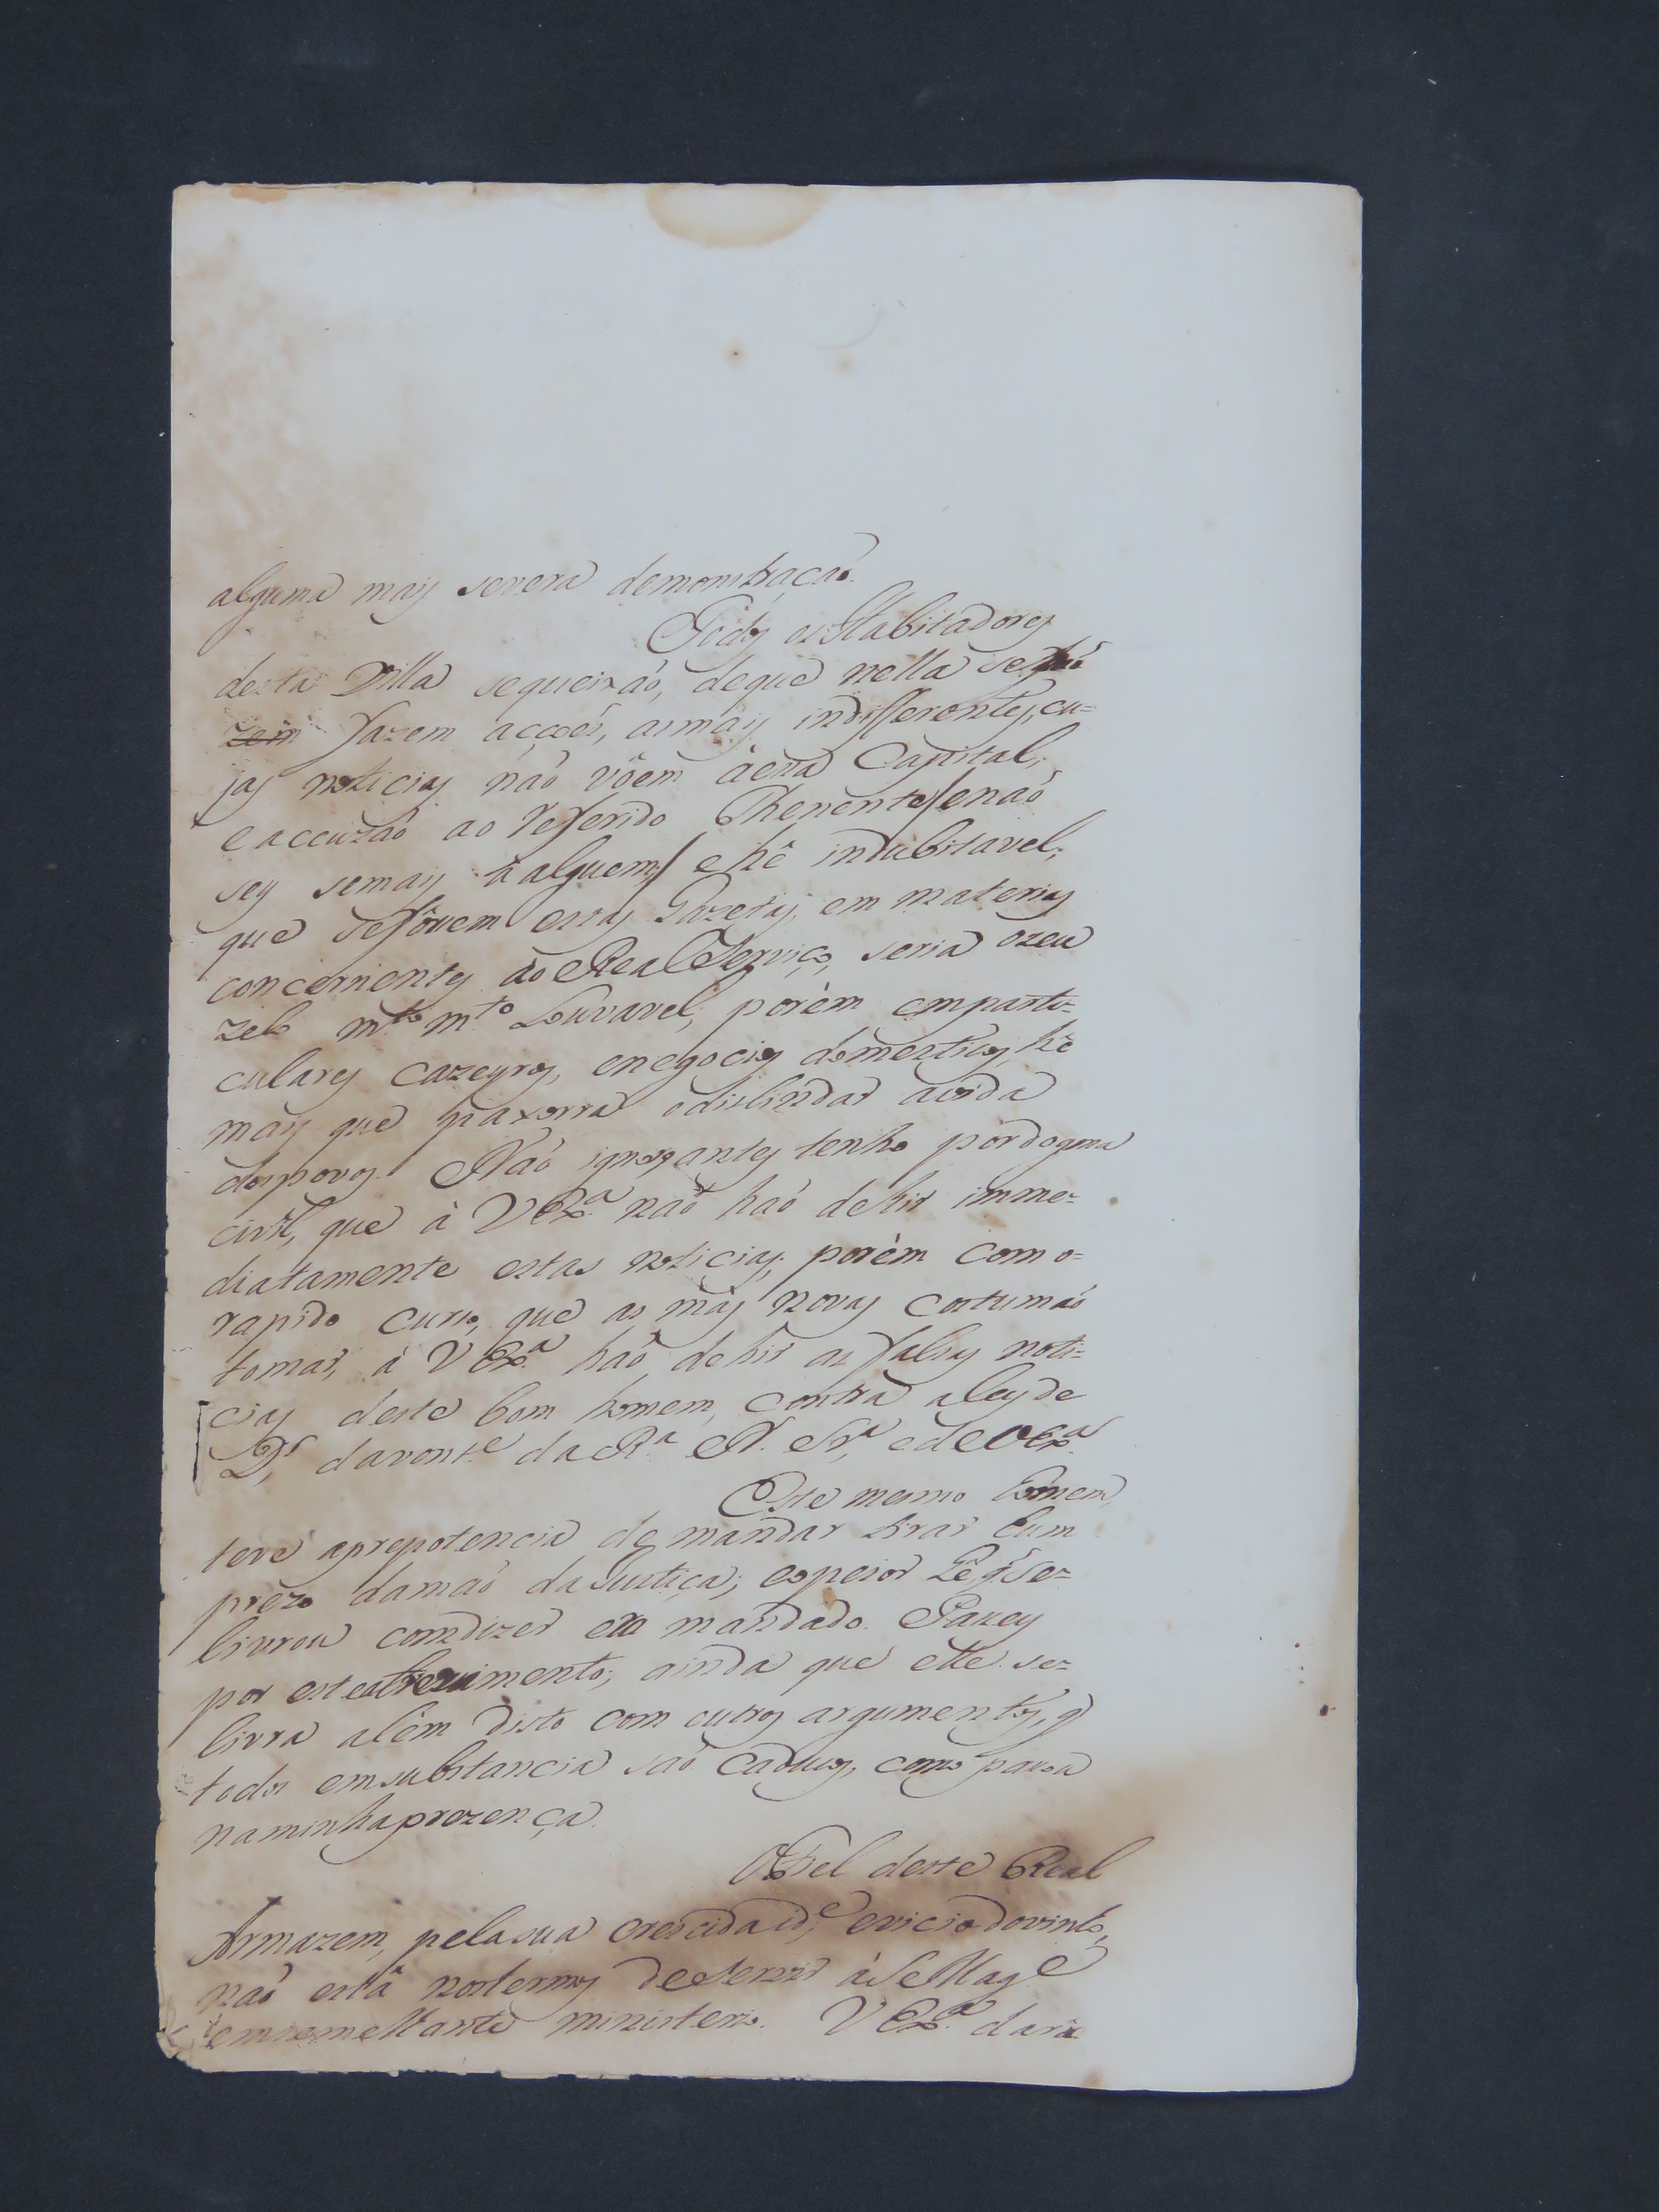 alguma mais severa demonstração.
Todos os Habitadores
desta Villa sequeixão, deque nella se
zem fazem acçoés, asmais indifferentes, cu=
jas noticias não vôem áessa Capital,
e accuzão ao referido Thenente/enaõ
sey semais a alguem/ e hê indubitavel,
que sefôssem estas Gazetas, em materias
concernentes ao Real Serviço, seria ozeu
zelo mto mto Louvavel, porém emparti=
culares cazeyros, enegocios domesticos, hê
mais que  edislindar avida
dospovos. Não ignoro antes tenho pordogma
civîl, que á VExa não haõ dehir imme=
diatamente estas noticias; porém com o=
rapido curso, que as más novas costumaõ
tomar, á VExa haõ dehir as falsas noti=
cias deste bom homem, contra aleyde
Ds, davonte da Ra N. Sra, edeVExa
Este mesmo homem,
teve aprepotencia de mandar tirar hum
prezo damaõ daJustiça; eopeior hê, q̃ se=
livrou comdizer era mandado. Passey
por esteatrevimento; ainda que elle se=
livra além disto com outros argumentos, q̃
todos emsubstancia saõ caducos, como passa
naminhaprezença.
OFiel deste Real
Armazem, pelasua crescidaide, eviciodovinho,
não está nostermos deservir áSeMage
emsemelhante ministerio. VExa dará